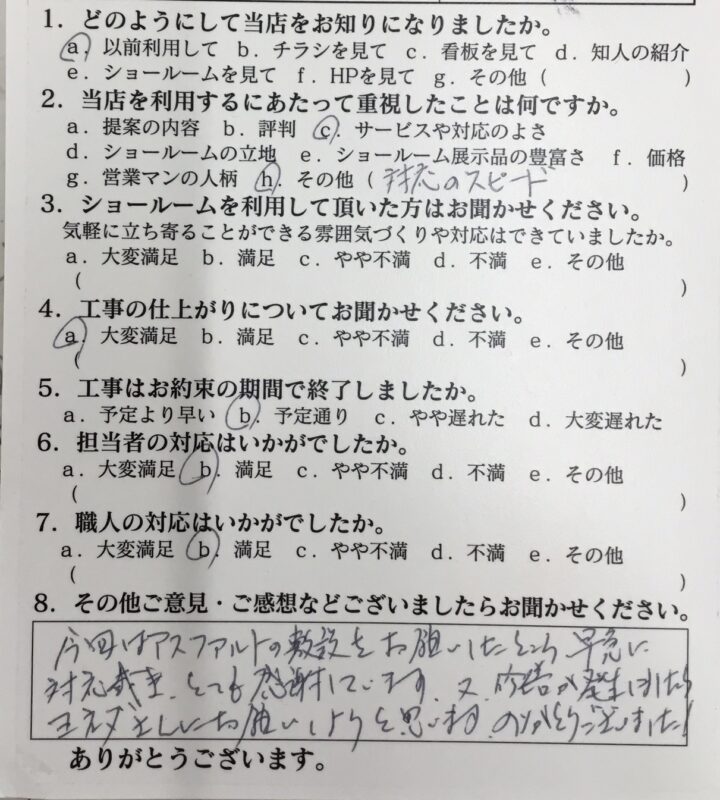 1. どのようにして当店をお知りになりましたか。
a. 以前利用して b. チラシを見て c. 看板を見て d. 知人の紹介
e. ショールームを見て f. HPを見て g. その他 ( )
2. 当店を利用するにあたって重視したことは何ですか。
a. 提案の内容 b. 評判 c. サービスや対応のよさ
d. ショールームの立地 e. ショールーム展示品の豊富さ f. 価格
g. 営業マンの人柄 h. その他 ( 対応のスピード )
3. ショールームを利用して頂いた方はお聞かせください。
気軽に立ち寄ることができる雰囲気づくりや対応はできていましたか。
a. 大変満足 b. 満足 c. やや不満 d. 不満 e. その他
( )
4. 工事の仕上がりについてお聞かせください。
a. 大変満足 b. 満足 c. やや不満 d. 不満 e. その他
( )
5. 工事はお約束の期間で終了しましたか。
a. 予定より早い b. 予定通り c. やや遅れた d. 大変遅れた
6. 担当者の対応はいかがでしたか。
a. 大変満足 b. 満足 c. やや不満 d. 不満 e. その他
( )
7. 職人の対応はいかがでしたか。
a. 大変満足 b. 満足 c. やや不満 d. 不満 e. その他
( )
8. その他ご意見・ご感想などございましたらお聞かせください。
今回はアスファルトの敷設をお願いしたところ 早急に
対応戴き、とても感謝しています。又、修繕が発生しましたら
ヨネダさんにお願いしようと思います。ありがとうございました!
ありがとうございます。